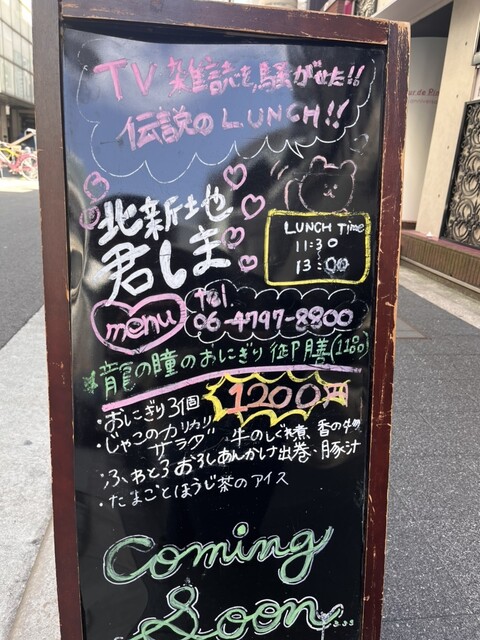 TV 雑誌を騒がせた!!
伝説の LUNCH!!
北新地
君しま
LUNCH Time
11:30
13:00
menu
Tel.
06-4797-8800
*龍の瞳のおにぎり御膳(11品)
1200円
・おにぎり3個
・じゃこのカリカリサラダ・牛のしぐれ煮、香の物
・ふわとろおろしあんかけ出巻・豚汁
・たまごとほうじ茶のアイス
Coming
Soon